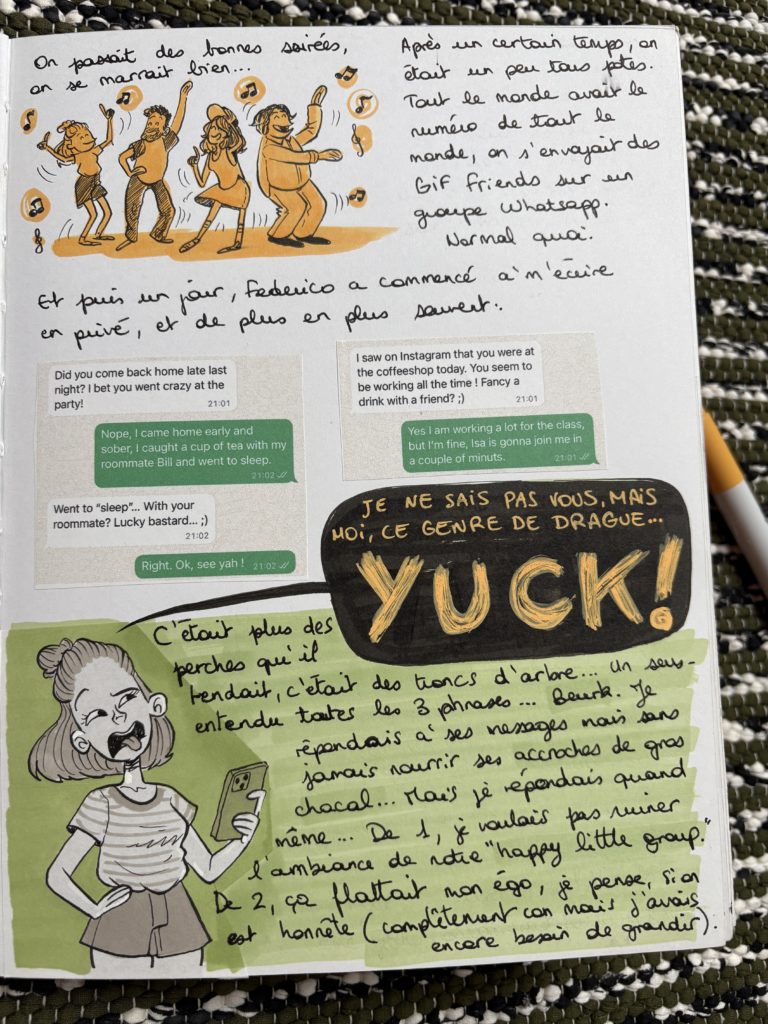 On passait des bonnes soirées,
on se marrait bien...
Après un certain temps, on
était un peu tous potes.
Tout le monde avait le
numéro de tout le
monde, on s'envoyait des
GiF friends sur un
groupe Whatsapp.
Normal quoi.
Et puis un jour, Federico a commencé à m'écrire
en privé, et de plus en plus souvent.
Did you come back home late last
night? I bet you went crazy at the
party!
21:01
Nope, I came home early and
sober, I caught a cup of tea with my
roommate Bill and went to sleep.
21:02
Went to “sleep”... With your
roommate? Lucky bastard... ;)
21:02
Right. Ok, see yah !
21:02
I saw on Instagram that you were at
the coffeeshop today. You seem to
be working all the time ! Fancy a
drink with a friend? ;)
21:01
Yes I am working a lot for the class,
but I'm fine, Isa is gonna join me in
a couple of minuts.
21:01
JE NE SAIS PAS VOUS, MAIS
MOi, CE GENRE DE DRAGUE...
YUCK!
C'était plus des
perches qu'il
tendait, c'était des troncs d'arbre... Un sous-
entendu toutes les 3 phrases... Beurk. Je
répondais à ses messages mais sans
jamais nourrir ses accroches de gros
chacal... Mais je répondais quand
même... De 1, je voulais pas ruiner
l'ambiance de notre "happy little group."
De 2, ça flattait mon égo, je pense, si on
est honnête (complètement con mais j'avais
encore besoin de grandir).